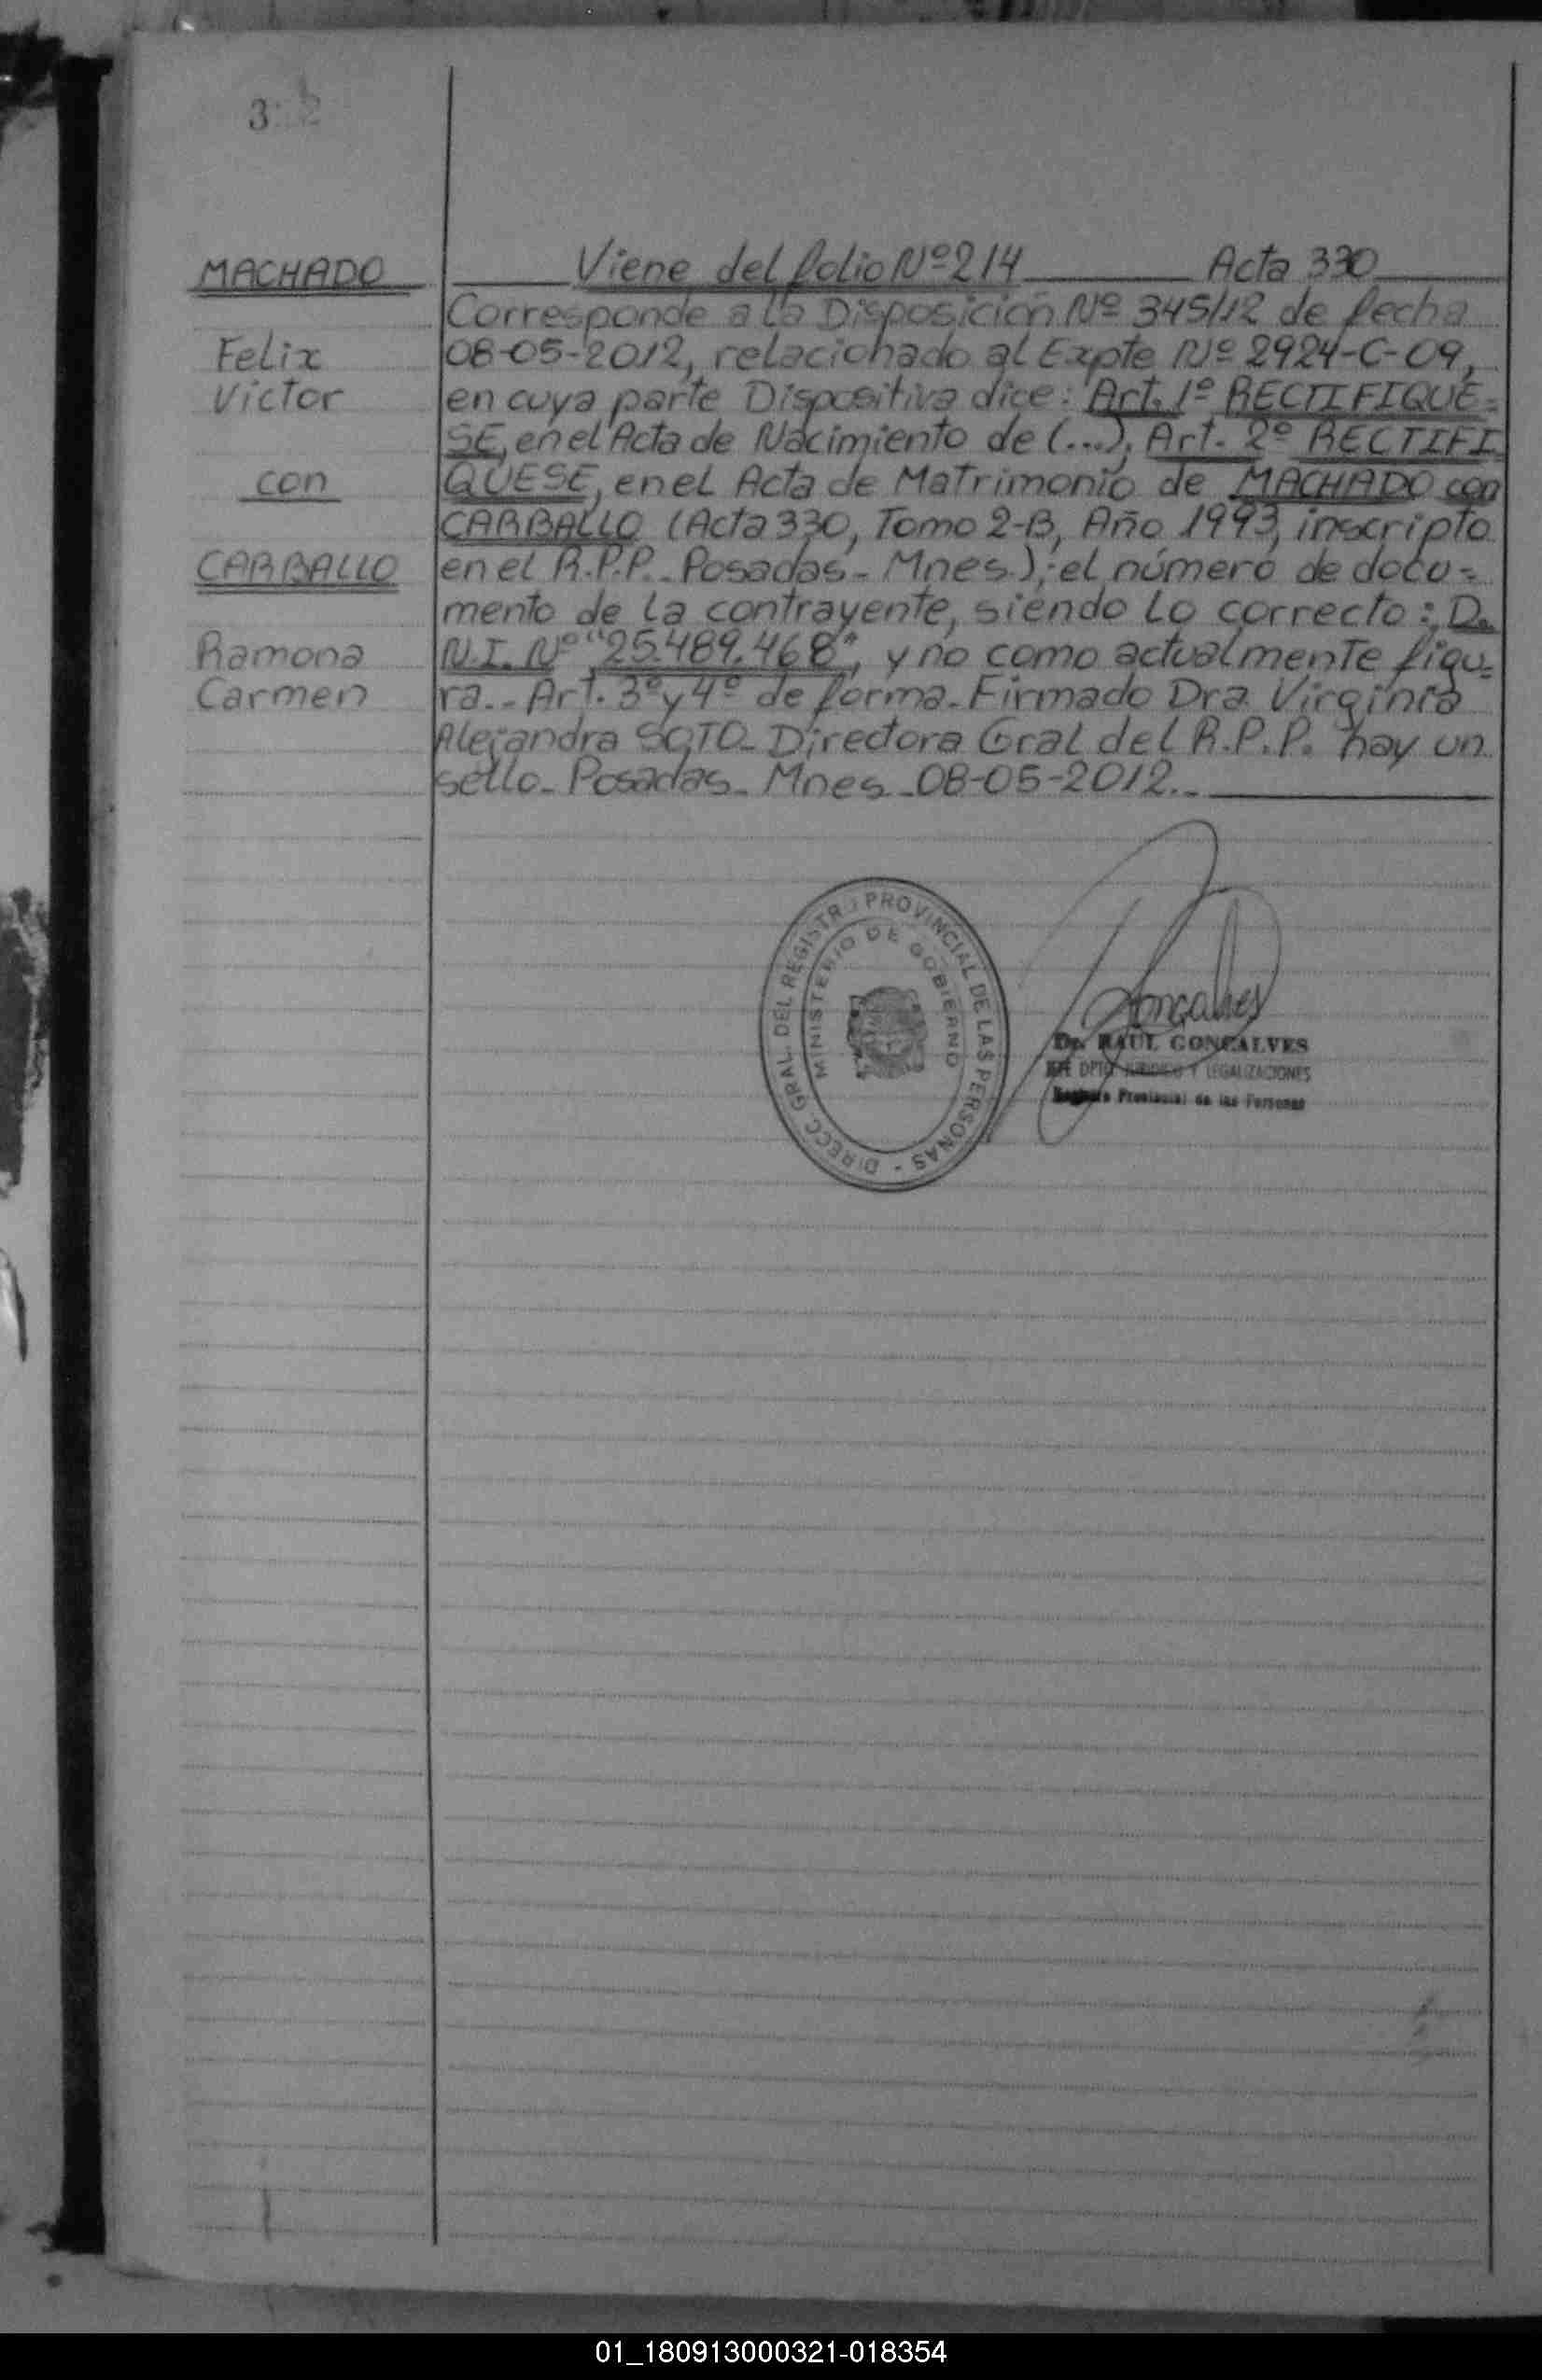 MACHADO
Felix
Victor
con
CARBALLO
Ramona
Carmen
Viene del folio Nº 214 Acta 330
Corresponde a la Disposición Nº 345/12 de fecha
08-05-2012, relacionado al Expte Nº 2924-C-09,
en cuya parte Dispositiva dice: Art. 1º RECTIFIQUE=
SE, en el Acta de Nacimiento de (...), Art. 2º RECTIFI
QUESE, en el Acta de Matrimonio de MACHADO con
CARBALLO (Acta 330, Tomo 2-B, Año 1993, inscripto
en el R.P.P. - Posadas - Mnes.); el número de docu=
mento de la contrayente, siendo lo correcto: D.
N.I. Nº "25.489.468", y no como actualmente figu=
ra.- Art. 3º y 4º de forma - Firmado Dra Virginia
Alejandra SOTO - Directora Gral del R.P.P. hay un
sello - Posadas - Mnes - 08-05-2012.-
DIRECC. GRAL. DEL REGISTRO PROVINCIAL DE LAS PERSONAS -
MINISTERIO DE GOBIERNO
Goncalves
Dr. RAUL GONCALVES
JEFE DPTO. JURIDICO Y LEGALIZACIONES
Registro Provincial de las Personas
01_180913000321-018354